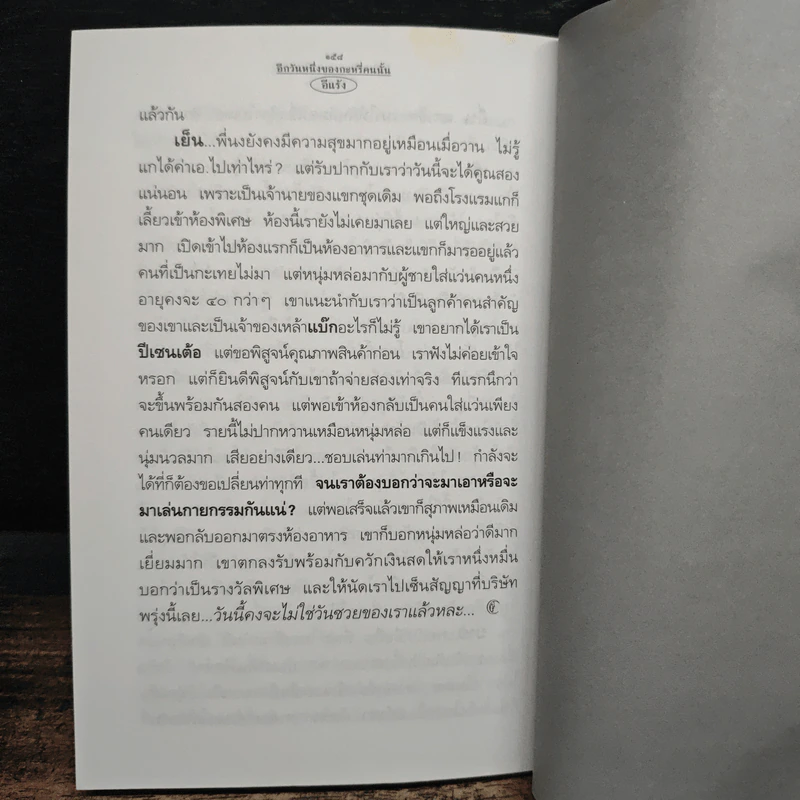 ๑๕๘
อีกวันหนึ่งของกะหรี่คนนั้น
อีแร้ง
แล้วกัน
เย็น...พี่นงยังคงมีความสุขมากอยู่เหมือนเมื่อวาน ไม่รู้
แกได้ค่าเอ.ไปเท่าไหร่? แต่รับปากกับเราว่าวันนี้จะได้คูณสอง
แน่นอน เพราะเป็นเจ้านายของแขกชุดเดิม พอถึงโรงแรมแกก็
เลี้ยวเข้าห้องพิเศษ ห้องนี้เรายังไม่เคยมาเลย แต่ใหญ่และสวย
มาก เปิดเข้าไปห้องแรกก็เป็นห้องอาหารและแขกก็มารออยู่แล้ว
คนที่เป็นกะเทยไม่มา แต่หนุ่มหล่อมากับผู้ชายใส่แว่นคนหนึ่ง
อายุคงจะ ๔๐ กว่าๆ เขาแนะนำกับเราว่าเป็นลูกค้าคนสำคัญ
ของเขาและเป็นเจ้าของเหล้าแบ๊กอะไรก็ไม่รู้ เขาอยากได้เราเป็น
ปีเซนเต้อ แต่ขอพิสูจน์คุณภาพสินค้าก่อน เราฟังไม่ค่อยเข้าใจ
หรอก แต่ก็ยินดีพิสูจน์กับเขาถ้าจ่ายสองเท่าจริง ทีแรกนึกว่า
จะขึ้นพร้อมกันสองคน แต่พอเข้าห้องกลับเป็นคนใส่แว่นเพียง
คนเดียว รายนี้ไม่ปากหวานเหมือนหนุ่มหล่อ แต่ก็แข็งแรงและ
นุ่มนวลมาก เสียอย่างเดียว...ชอบเล่นท่ามากเกินไป! กำลังจะ
ได้ที่ก็ต้องขอเปลี่ยนท่าทุกที จนเราต้องบอกว่าจะมาเอาหรือจะ
มาเล่นกายกรรมกันแน่? แต่พอเสร็จแล้วเขาก็สุภาพเหมือนเดิม
และพอกลับออกมาตรงห้องอาหาร เขาก็บอกหนุ่มหล่อว่าดีมาก
เยี่ยมมาก เขาตกลงรับพร้อมกับควักเงินสดให้เราหนึ่งหมื่น
บอกว่าเป็นรางวัลพิเศษ และให้นัดเราไปเซ็นสัญญาที่บริษัท
พรุ่งนี้เลย...วันนี้คงจะไม่ใช่วันซวยของเราแล้วหละ...